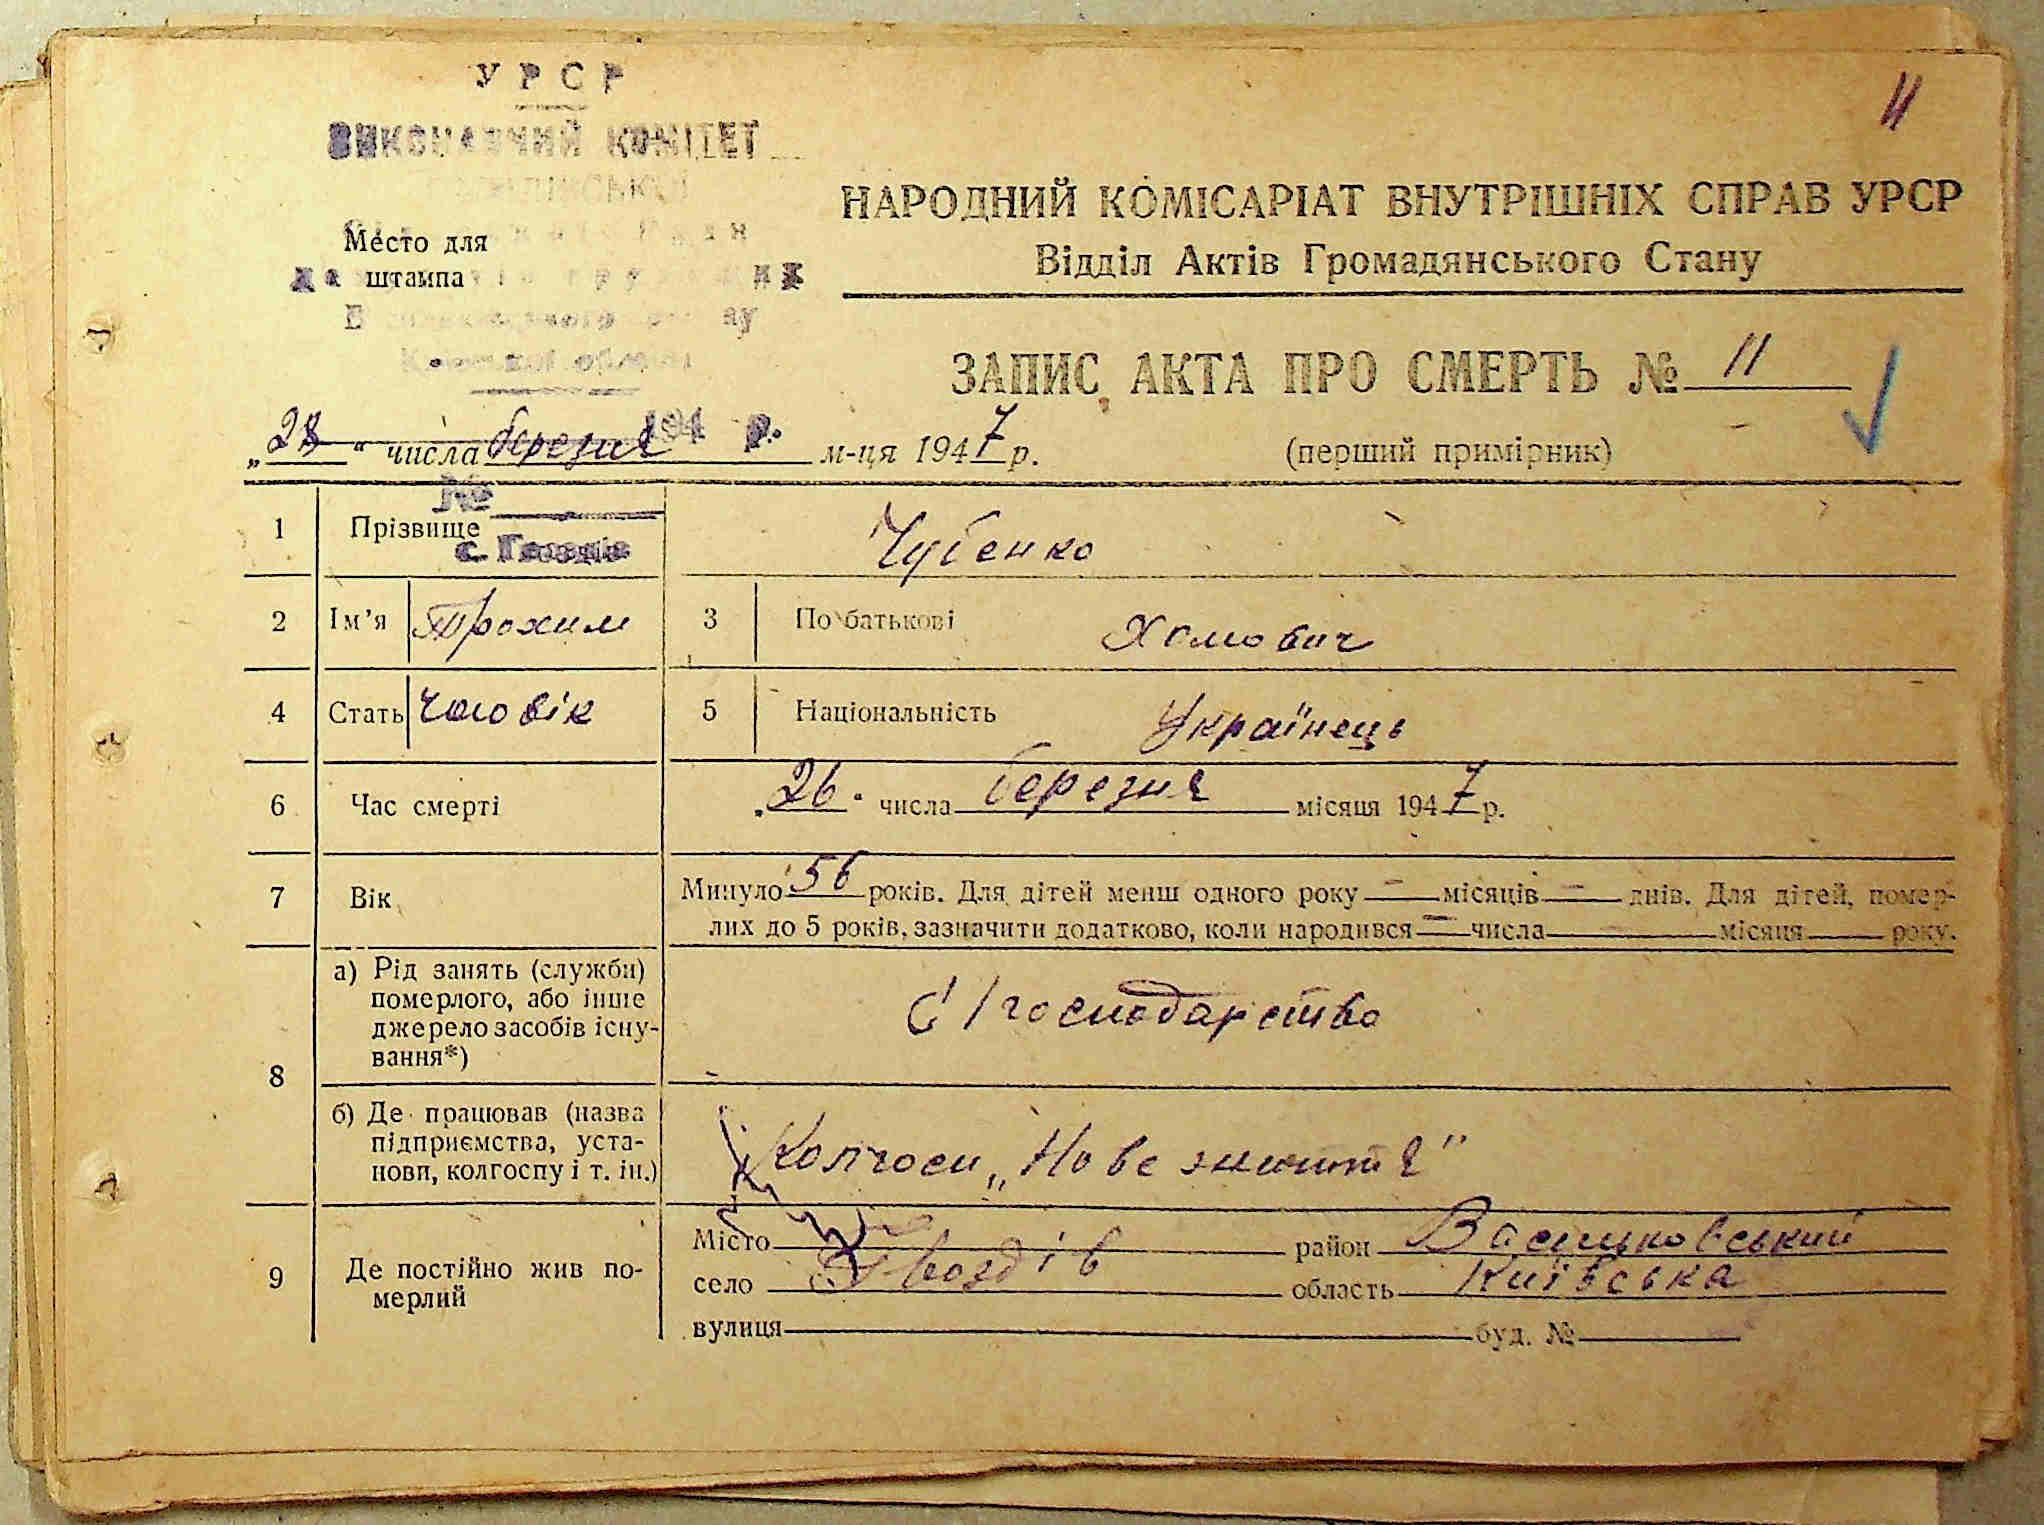 УРСР
11
ВИКОНАВЧИЙ КОМІТЕТ
НАРОДНИЙ КОМІСАРІАТ ВНУТРІШНІХ СПРАВ УРСР
Место для
штампа
Відділ Актів Громадянського Стану
ЗАПИС АКТА ПРО СМЕРТЬ № 11
„28“ числа березня м-ця 1947 р.
(перший примірник)
№
1 Прізвище Чубенко
с. Гвоздів
2 Ім'я Трохим 3 По батькові Хомович
4 Стать Чоловік 5 Національність Українець
6 Час смерті „26“ числа березня місяця 1947 р.
7 Вік Минуло 56 років. Для дітей менш одного року — місяців — днів. Для дітей, помер-
лих до 5 років, зазначити додатково, коли народився — числа — місяця — року.
8 а) Рід занять (служби)
померлого, або інше
джерело засобів існу-
вання*)
С/господарство
б) Де працював (назва
підприємства, уста-
нови, колгоспу і т. ін.)
Колгосп „Нове життя"
9 Де постійно жив по-
мерлий
Місто район Васильковський
село Гвоздів область Київська
вулиця буд. №